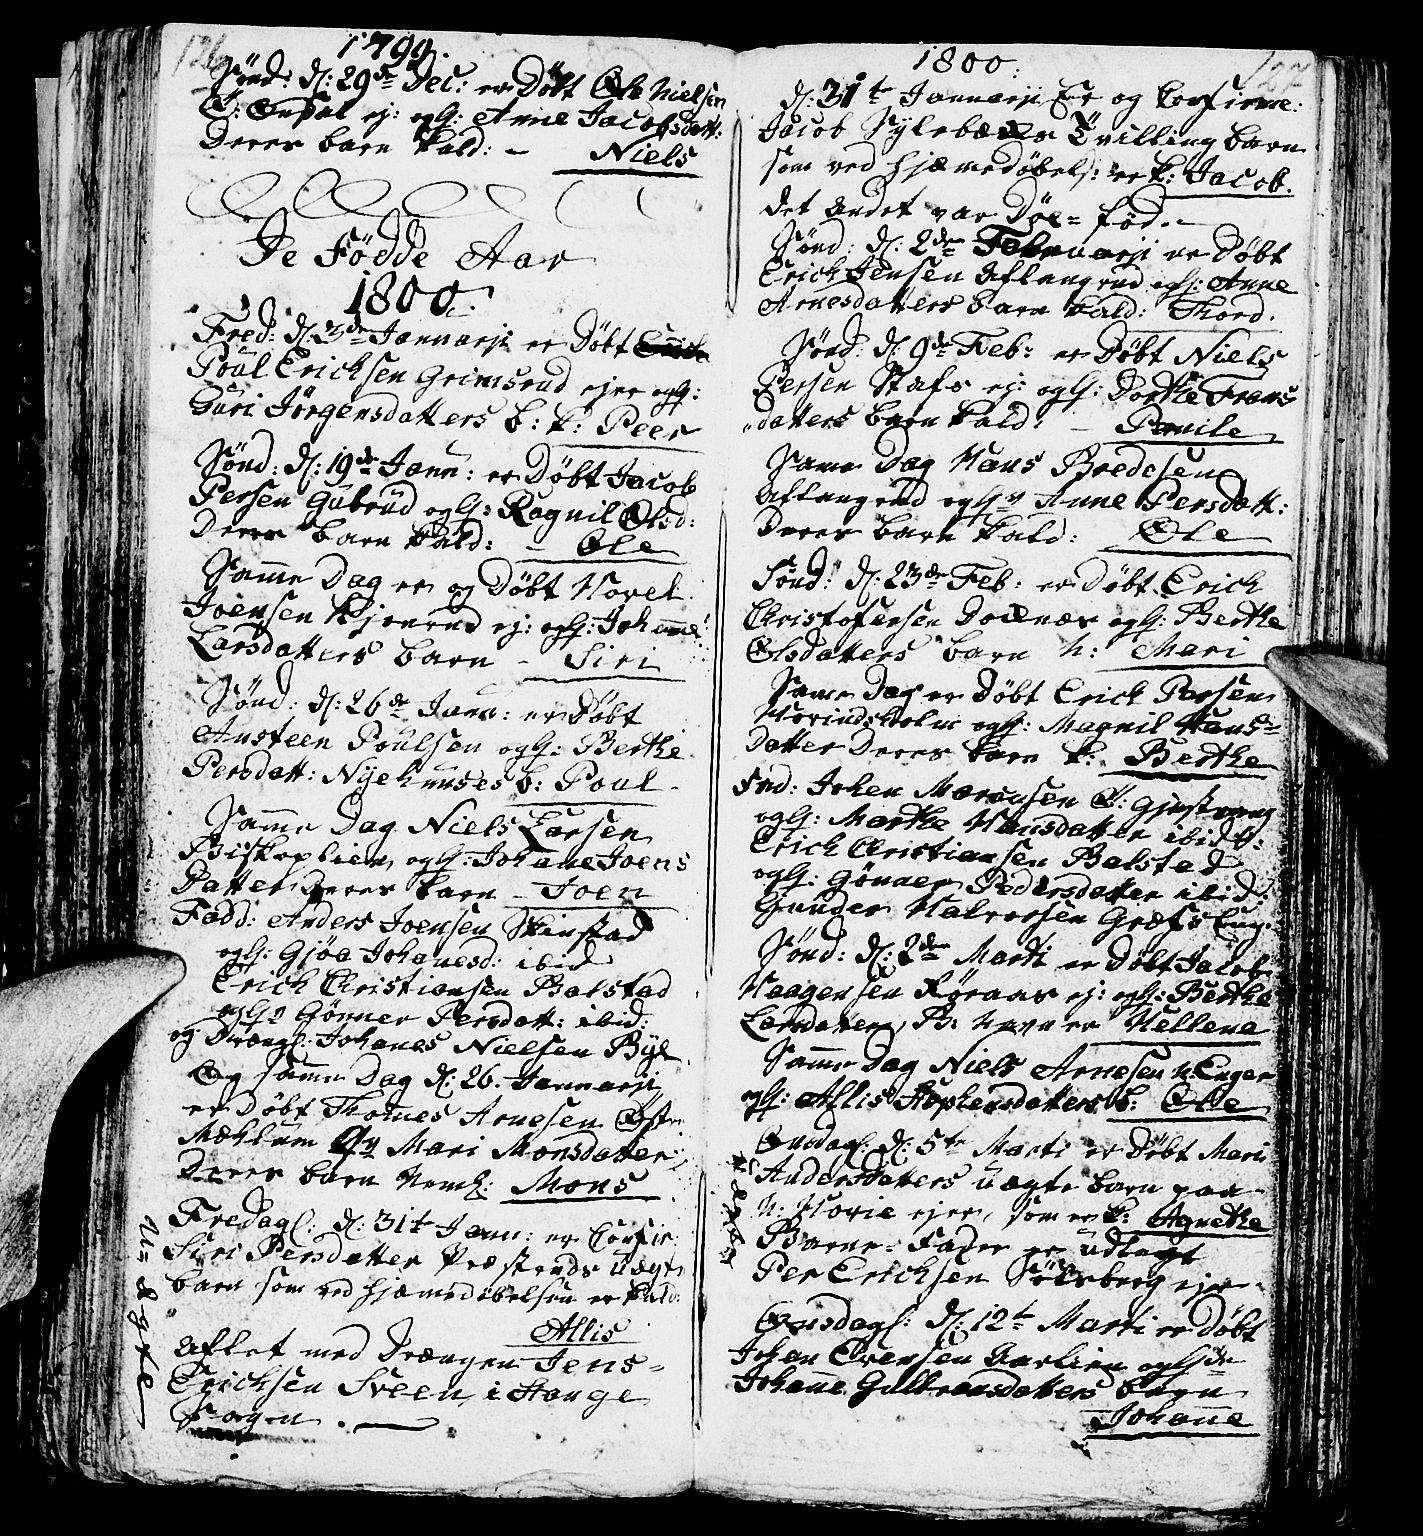 126
1799.
Sönd: d: 29de Dec: er Döbt Ole Nielsen
ej: og h: Anne Jacobsdatt:
Deres barn kald: – Niels
De Födde Aar
1800.
Fred: d: 3de Januarji er Döbt
Poul Ericksen Grimsrud ejer og h:
Guri Jörgensdatters b: k: Peer
Sönd: d: 19de Janu: er Döbt Jacob
Persen Gubrud og h: Ragnil Olsd:
Deres barn kald: – Ole
Samme Dag er og Döbt Hovel
Joensen ej: og h: Johanne
Larsdatters barn – Siri
Sönd: d: 26de Janu: er Döbt
Austeen Poulsen og h: Berthe
Persdatt: Nyehuuses b: Poul
Samme Dag Niels Larsen
Biskoplien og h: Johane Joens
Datter Deres barn – Joen
Fadd: Anders Joensen Skinstad
og h: Gjöa Johanesd: ibid
Erick Christiansen Balstad
og h: Gönner Persdatt: ibid:
og Drængl: Johanes Nielsen Bye
Og samme Dag d: 26. Januarji
er Döbt Thomes Arnesen Östre
Mæhlum Qv Mari Monsdatter
Deres barn Neml: Mons
Fredagl: d: 31te Janu: er Confir:
Siri Persdatter Præstruds uægte
barn som ved hjæmedöbelsen er kald:
Allis
aflet med Drængen Jens
Ericksen Sveen i Stange
Sogen.
U= Ægte
1800.
d: 31te Januarji Er og konfirme:
Jacob Tvilling barn
som ved hjæmedöbels: er k: Jacob.
det andet var Död= föd.
Sönd: d: 2de Februarji er Döbt
Erick Jensen Aflangrud og h: Anne
Arnesdatters barn kald: Thord.
Sönd: d: 9de Feb: er Döbt Niels
Persen Stafs ej: og h: Dorthe Frans
datters barn kald: – Pernile
Same Dag Hans Bredesen
Aflangrud og h: Anne Persdatt:
Deres barn kald: Ole
Sönd: d: 23de Feb: er Döbt Erick
Christofersen Doknæs og h: Berthe
Olsdatters barn N: Mari
Same Dag er Döbt Erick Persen
og h: Magnil Hans=
Datter Deres barn k: Berthe
Fad: Johen
og h: Marthe Hansdatter ibid:
Erick Christiansen Balstad
og h: Gönner Pedersdatter ibid:
Gunder Halvorsen Græfs Eng.
Sönd: d: 2de Marti er Döbt Jacob
Haagensen Röraas ej: og h: Berthe
Larsdatter, B: Navn er Hellene
Samme Dag Niels Arnesen N: Enger
og h: Allis Stephensdatters b: Ole
Onsdagl: d: 5te Marti er Döbt Mari
Andersdatters uægte barn paa
N: Hovie ejer, som er k: Agnethe
Barne-Fader er udlagt
Per Ericksen Sölsberg ejer
Onsdagl: d: 12te Marti er Döbt
Johan Evensen Aarlien og h:
Johanne Gulbransdatters barn
Johanne